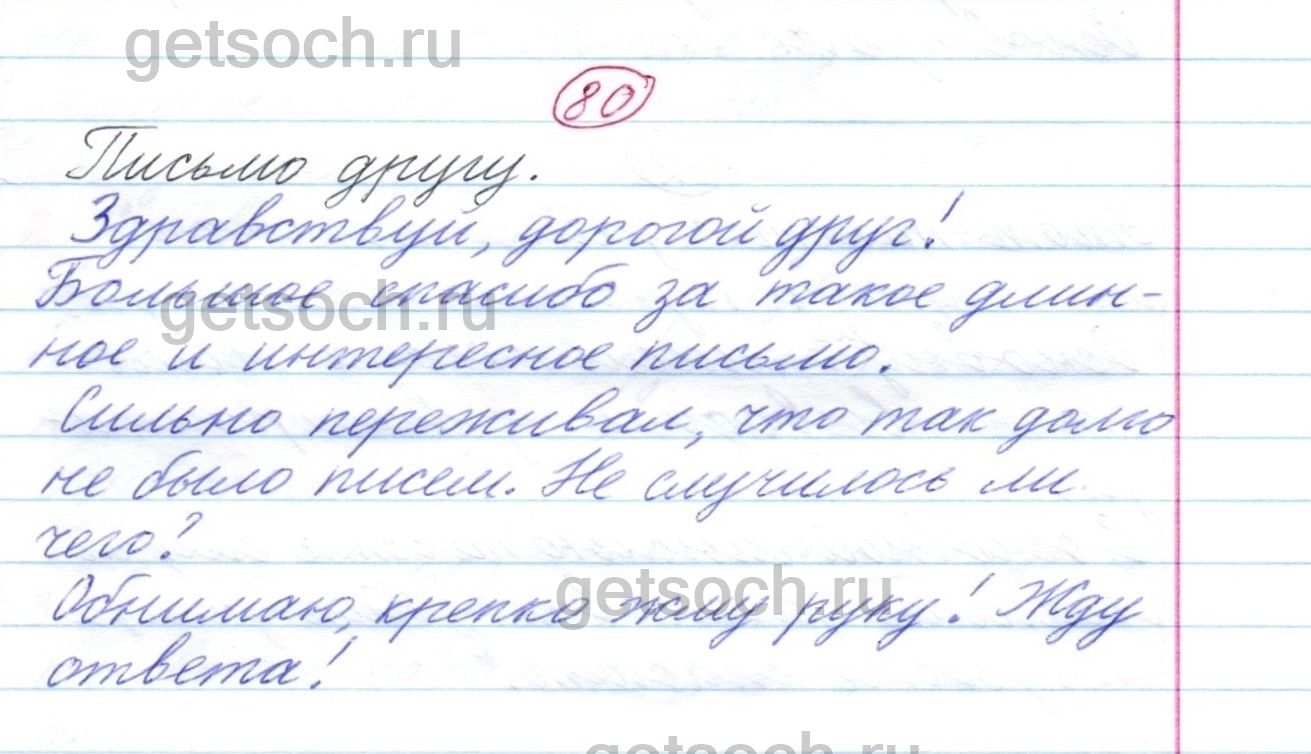 getsoch.ru
80
Письмо другу.
Здравствуй, дорогой друг!
Большое спасибо за такое длин-
ное и интересное письмо.
getsoch.ru
Сильно переживал, что так долго
не было писем. Не случилось ли
чего?
Обнимаю, крепко жму руку! Жду
getsoch.ru
ответа!
getsoch.ru